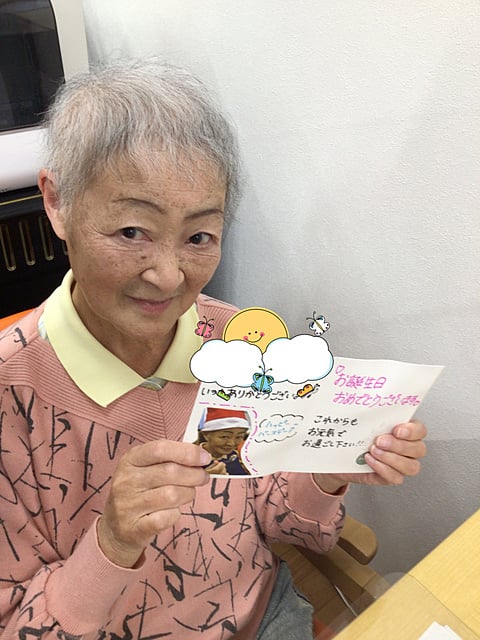 いつもありがとうございます
お誕生日
おめでとうございます
ハッピー
バースデー
これからも
お元気で
お過ごし下さい!!